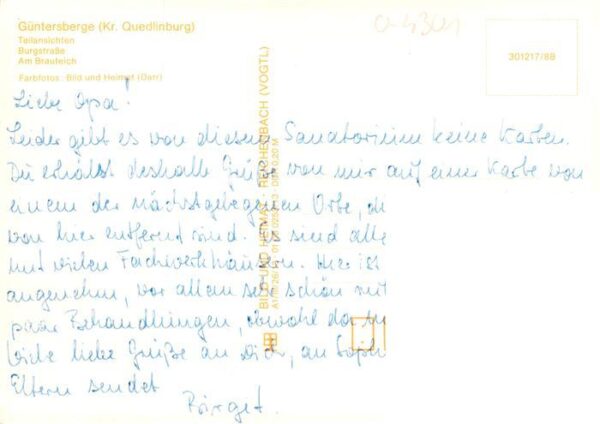 Güntersberge (Kr. Quedlinburg)
Teilansichten
Burgstraße
Am Brauteich
Farbfotos: Bild und Heimat (Darr)
301217/88
BILD UND HEIMAT REICHENBACH (VOGTL)
Liebe Opa!
Leider gibt es von diesem Sanatorium keine Karten.
Du erhälst deshalb Grüße von mir auf einer Karte von
einem der nächstgelegenen Orte, di
von hier entfernt sind. Es sind alle
mit vielen Fachwerkhäusern. Hier ist
angenehm, vor allem sehr schön mit
paar Behandlungen, obwohl da
Viele liebe Grüße an Dich, an Soph
Eltern sendet
Birget.